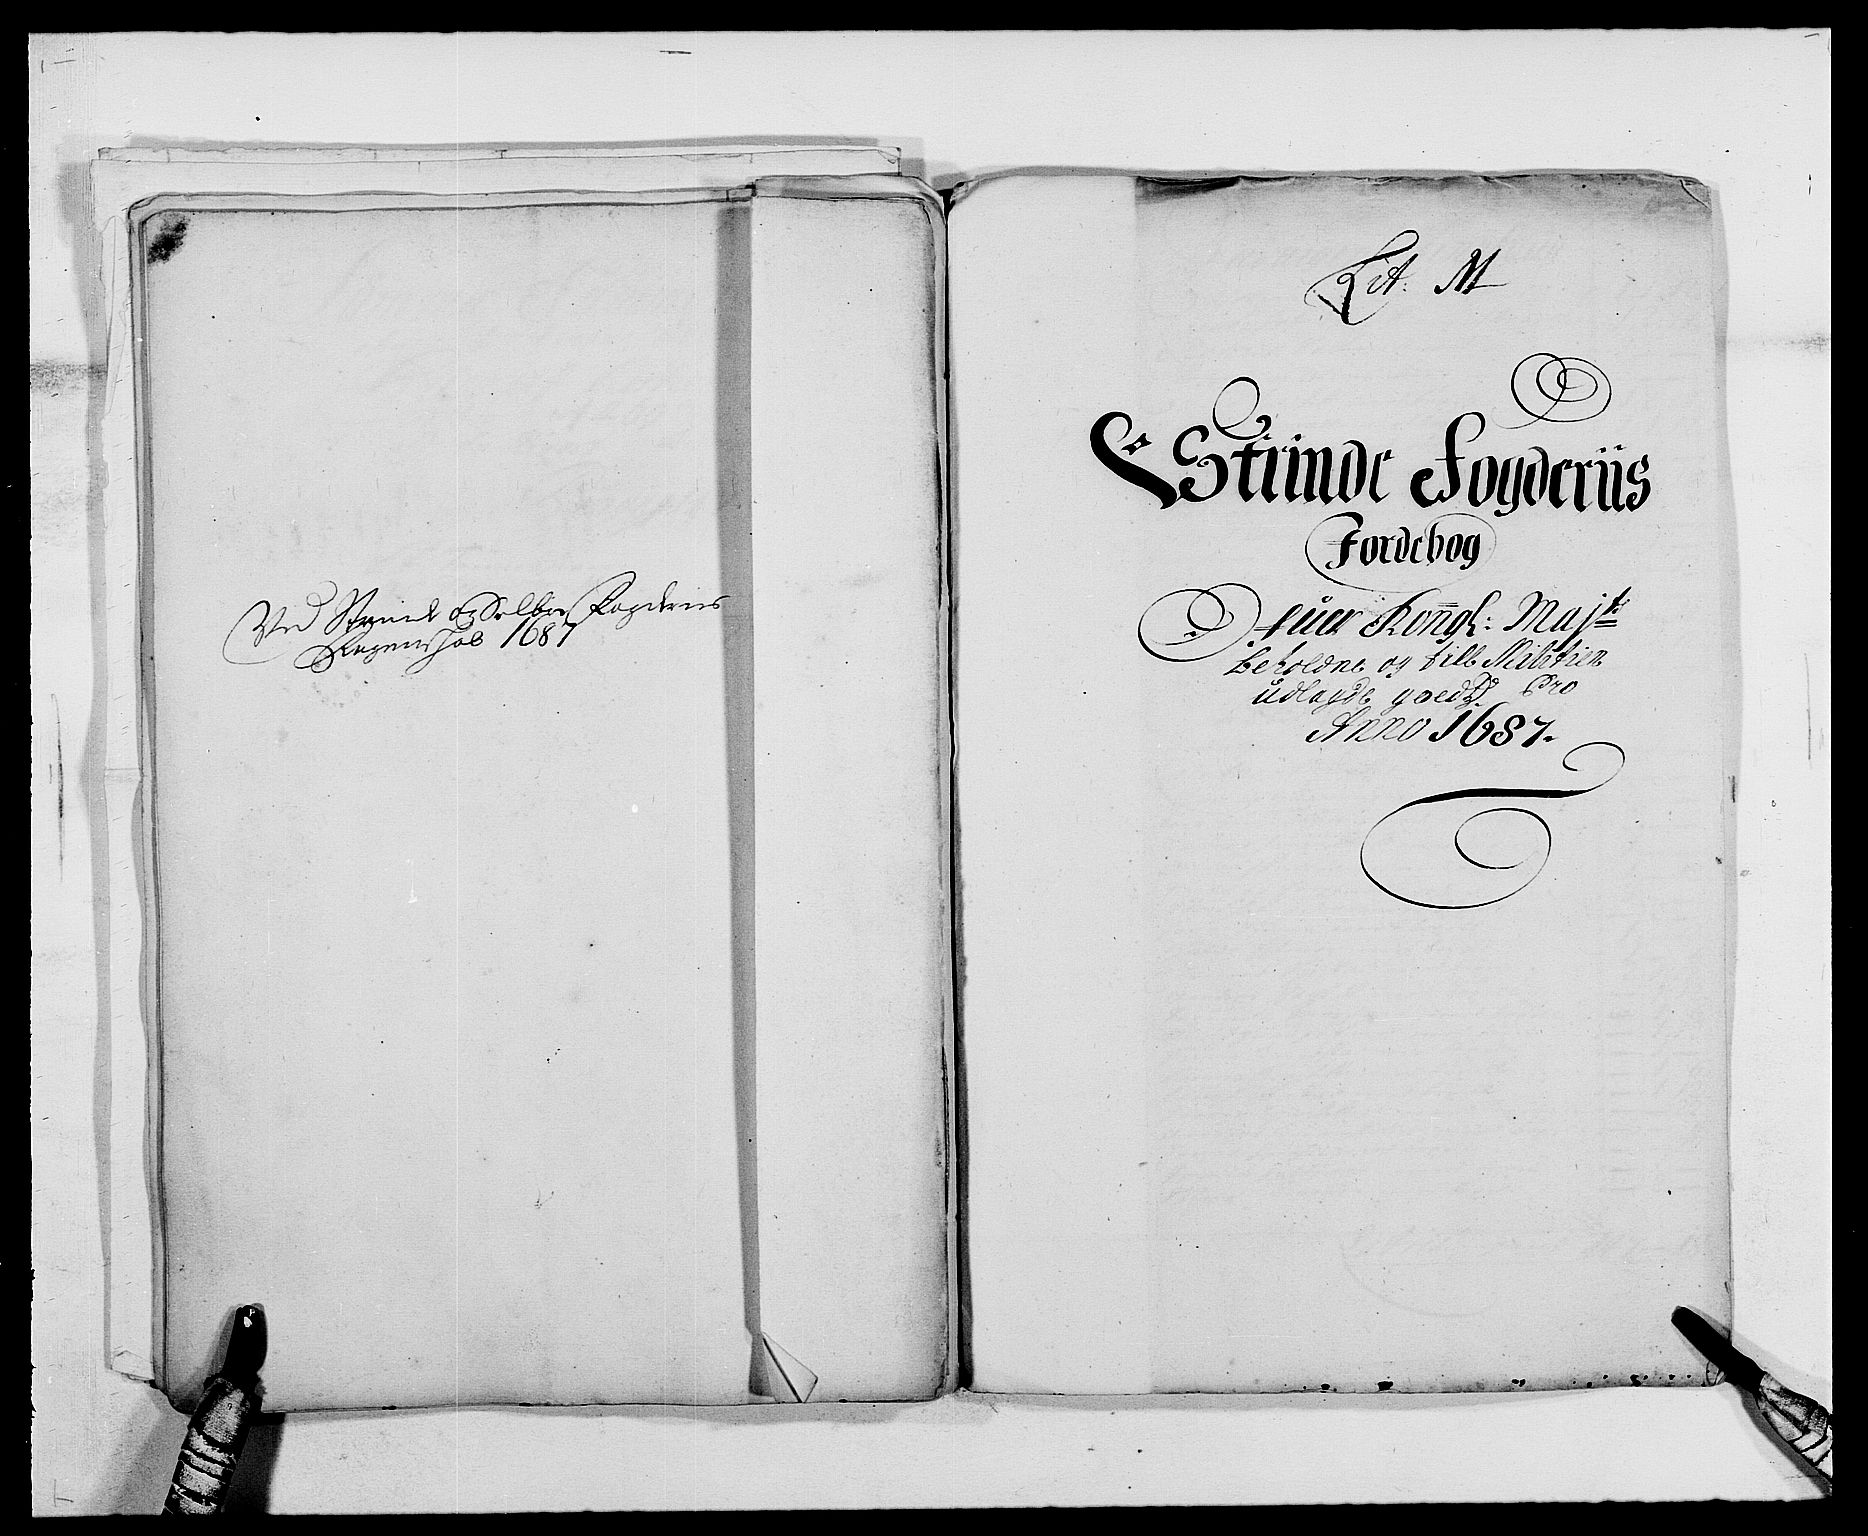 Ved Strinde og Selboe Fogderies
Regenschab 1687
Lit: M
Strinde Fogderiis
Jordebog
Ofuer Kongl: Maj:ts
beholdne og till Militien
udlagde goeds Pro
Anno 1687.